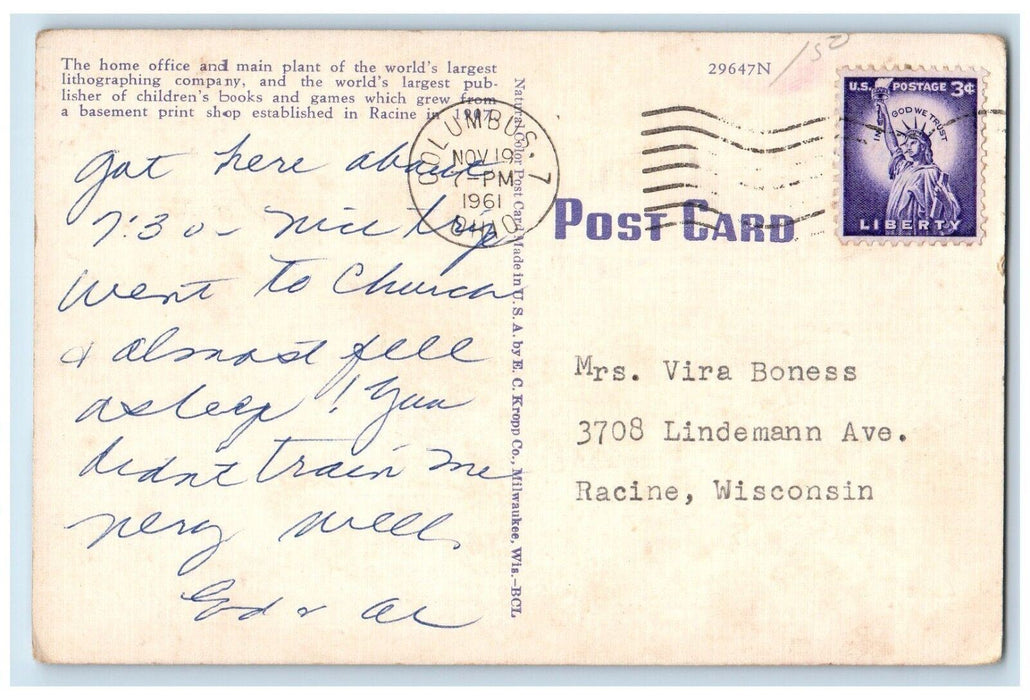 The home office and main plant of the world's largest
lithographing company, and the world's largest pub-
lisher of children's books and games which grew from
a basement print shop established in Racine in 1907.
Got here about
7:30 - nice trip
Went to Church
& almost fell
asleep! You
didnt train me
very well.
& Al
Natural Color Post Card Made in U. S. A. by E. C. Kropp Co., Milwaukee, Wis.—BCL
29647N
150
COLUMBUS. 7
NOV 19
7-PM
1961
OHIO
U.S. POSTAGE 3¢
IN GOD WE TRUST
LIBERTY
POST CARD
Mrs. Vira Boness
3708 Lindemann Ave.
Racine, Wisconsin